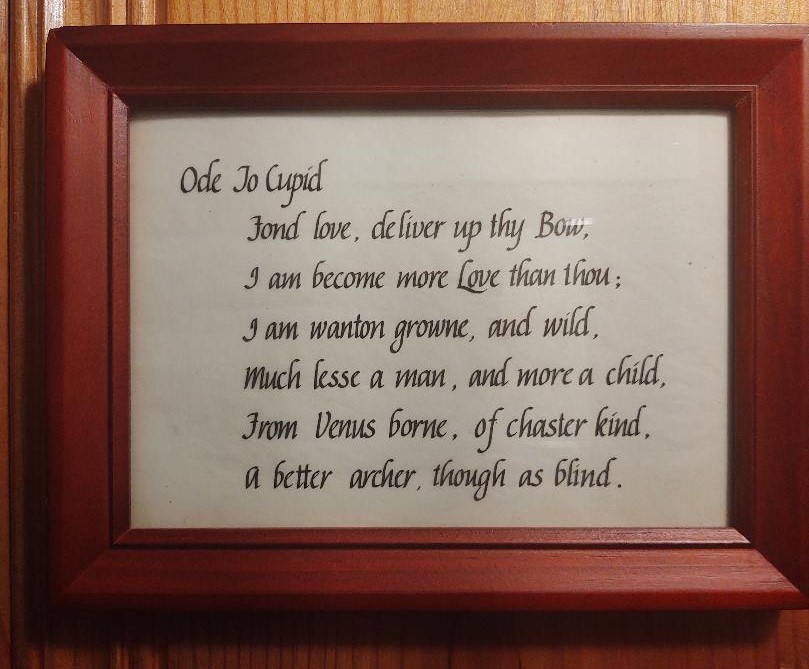 Ode To Cupid
Fond love, deliver up thy Bow,
I am become more Love than thou;
I am wanton growne, and wild,
Much lesse a man, and more a child,
From Venus borne, of chaster kind,
A better archer, though as blind.